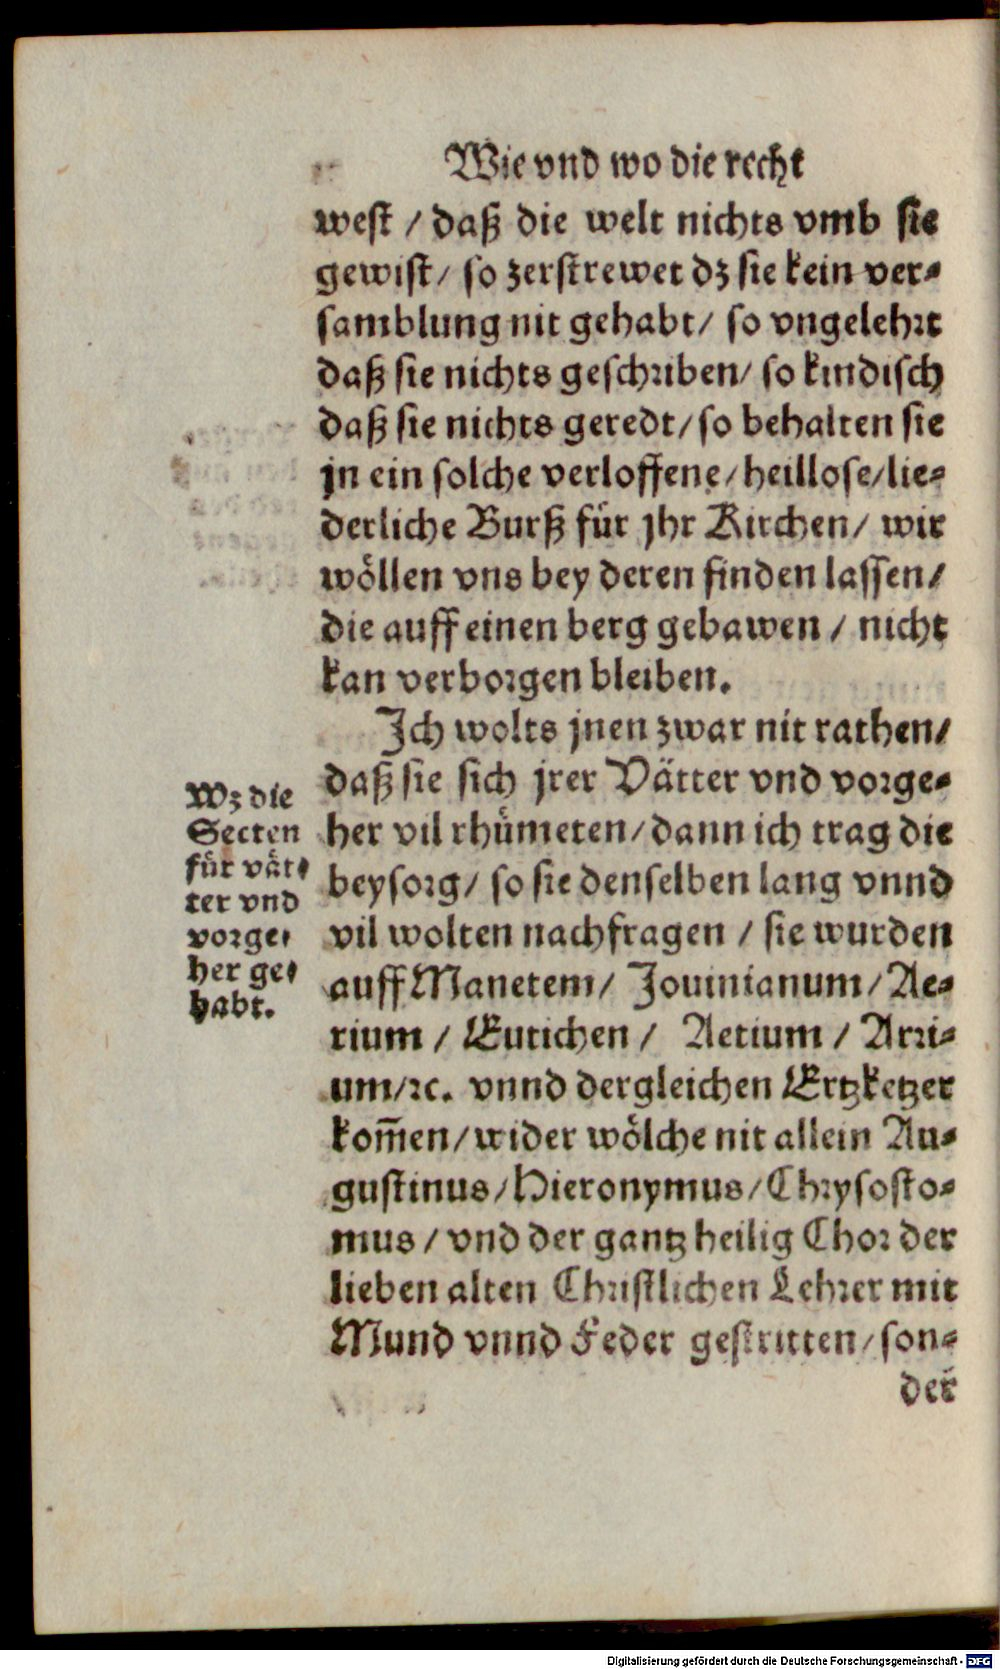 Wie vnd wo die recht
west / daß die welt nichts vmb sie
gewist / so zerstrewet dz sie kein ver-
samblung nit gehabt / so vngelehrt
daß sie nichts geschriben / so kindisch
daß sie nichts geredt / so behalten sie
jn ein solche verloffene / heillose / lie-
derliche Burß für jhr Kirchen / wir
wöllen vns bey deren finden lassen /
die auff einen berg gebawen / nicht
kan verborgen bleiben.
Ich wolts jnen zwar nit rathen /
daß sie sich jrer Vätter vnd vorge-
her vil rhümeten / dann ich trag die
beysorg / so sie denselben lang vnnd
vil wolten nachfragen / sie wurden
auff Manetem / Jouinianum / Ae-
rium / Eutichen / Aetium / Arri-
um / ꝛc. vnnd dergleichen Ertzketzer
kom̅en / wider wölche nit allein Au-
gustinus / Hieronymus / Chrysosto-
mus / vnd der gantz heilig Chor der
lieben alten Christlichen Lehrer mit
Mund vnnd Feder gestritten / son-
der
Wz die
Secten
für vät-
ter vnd
vorge-
her ge-
habt.
Digitalisierung gefördert durch die Deutsche Forschungsgemeinschaft - DFG